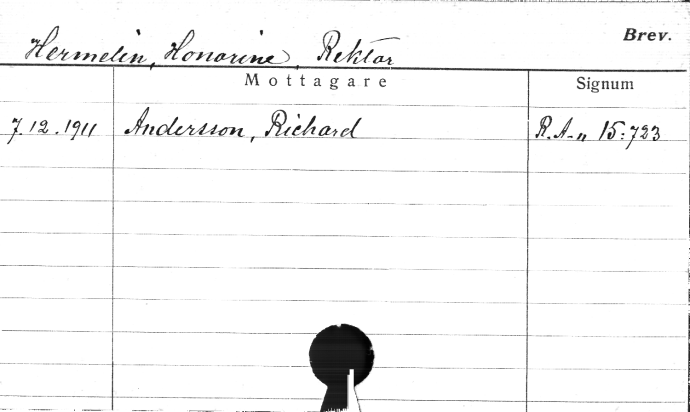 Brev.
Hermelin, Honorine, Rektor
Mottagare Signum
7.12.1911 Andersson, Richard R.A-n 15:723